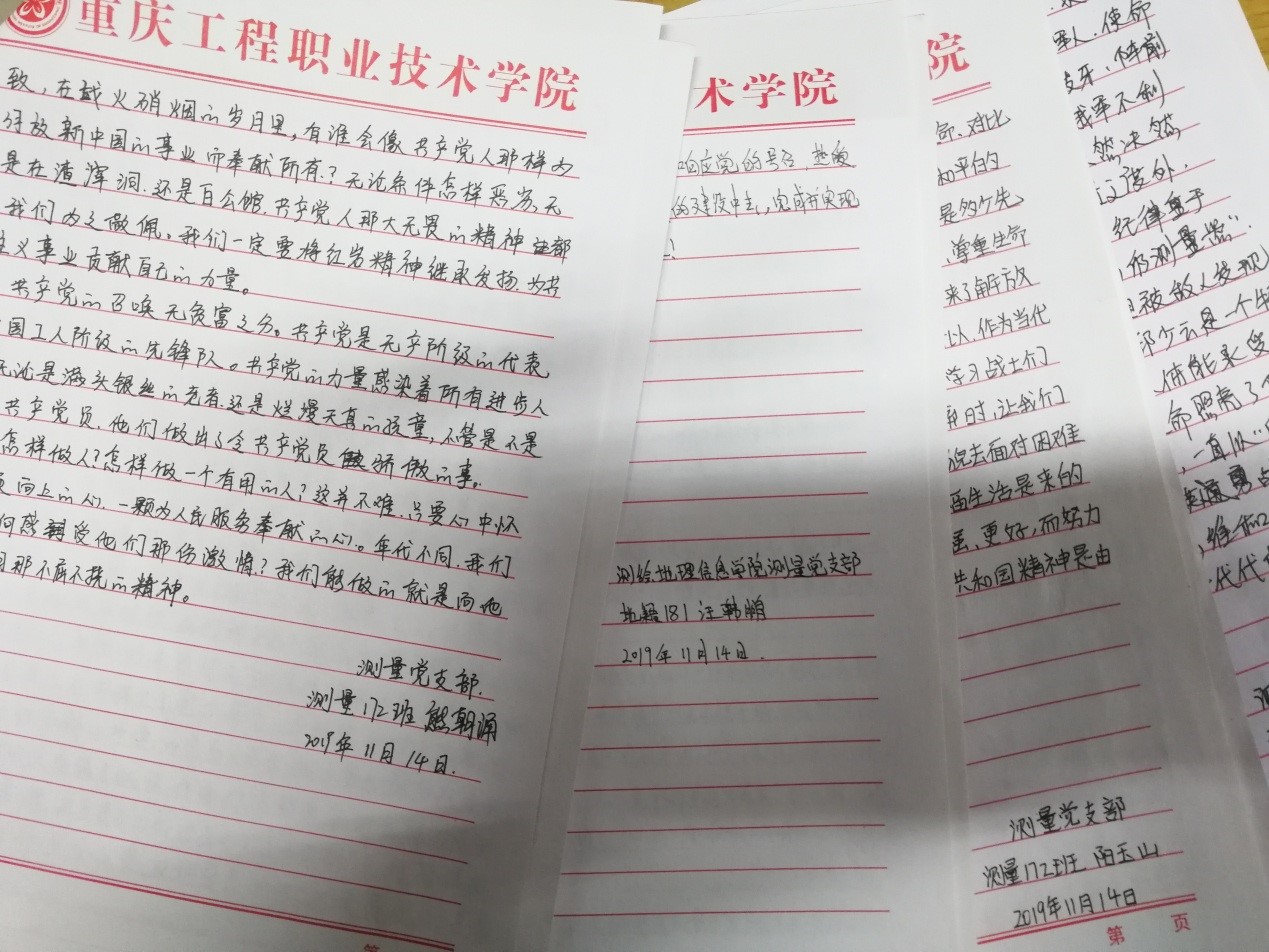 重庆工程职业技术学院
致，在战火硝烟的岁月里，有谁会像共产党人那样为
放新中国的事业而奉献所有？无论条件怎样恶劣，无
是在渣滓洞，还是白公馆，共产党人那大无畏的精神
我们为之敬佩。我们一定要将红岩精神继承发扬，为共
主义事业贡献自己的力量。
共产党的召唤无贫富之分。共产党是无产阶级的代表
国工人阶级的先锋队。共产党的力量感染着所有进步人
无论是满头银丝的老者，还是烂漫天真的孩童，不管是不是
共产党员，他们做出了令共产党员骄傲的事。
怎样做人？怎样做一个有用的人？这并不难，只要心中怀
向上的心，一颗为人民服务奉献的心。年代不同，我们
何感受他们那份激情？我们能做的就是向他
那不屈不挠的精神。
测量党支部
测量172班 熊朝涌
2019年11月14日.
术学院
响应党的号召，热爱
的建设中去，完成并实现
！
测绘地理信息学院测量党支部
地籍181 汪韩鹏
2019年11月14日.
院
命，对比
和平的
是多么先
尊重生命
来了解放
以，作为当代
学习战士们
时，让我们
说去面对困难
生活是来的
更好，而努力
共和国精神是由
测量党支部
测量172班 阳玉山
2019年11月14日
第 页
军人，使命
支牙，阵前
我军不利
然决然
度外.
纪律重于
的测量器”
被敌人发现
邱少云是一个
体能承受
命照亮了
，一直以“
勇
，维和
代代